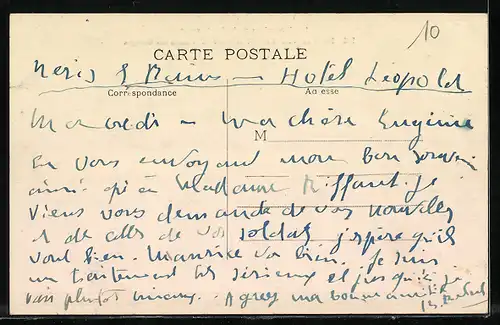 10
CARTE POSTALE
Neris les Bains — Hotel Léopold
Correspondance Adresse
Mercredi — Ma chère Eugénie
M
En vous envoyant mon bon souvenir
ainsi qu'à Madame Riffault je
viens vous demander de vos nouvelles
et de celles de vos soldats j'espère qu'ils
vont bien. Maurice va bien. Je suis
un traitement très sérieux et jusqu'ici je
vais plutôt mieux. Agréez ma bonne amitié